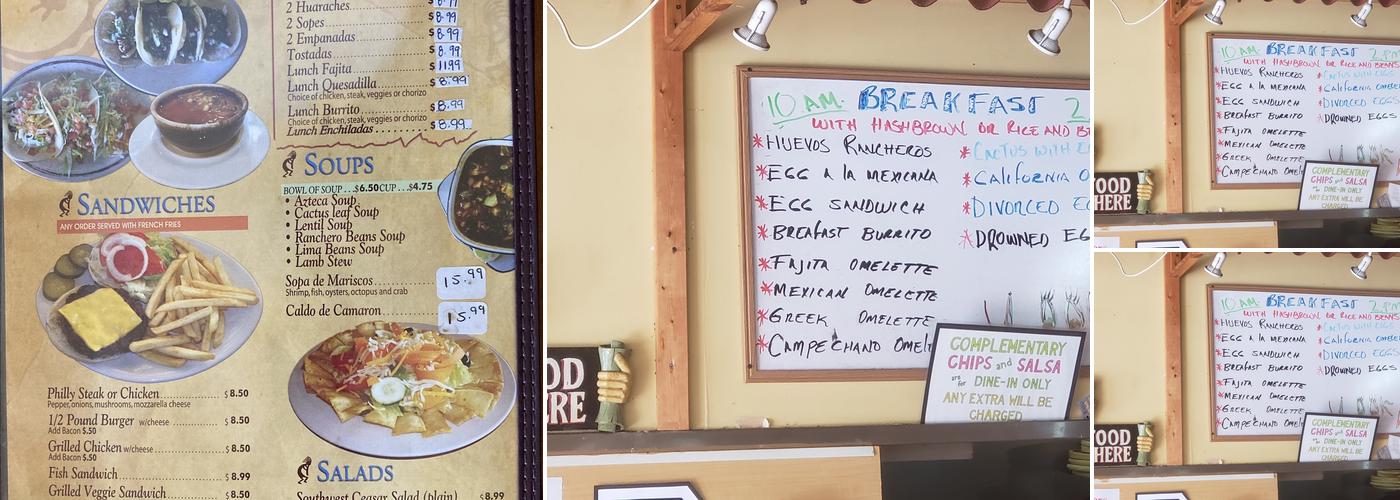 2 Huaraches
2 Sopes $8.99
2 Empanadas $8.99
Tostadas $8.99
Lunch Fajita $11.99
Lunch Quesadilla $8.99
Choice of chicken, steak, veggies or chorizo
Lunch Burrito $8.99
Choice of chicken, steak, veggies or chorizo
Lunch Enchiladas $8.99
SOUPS
BOWL OF SOUP...$6.50 CUP...$4.75
• Azteca Soup
• Cactus leaf Soup
• Lentil Soup
• Ranchero Beans Soup
• Lima Beans Soup
• Lamb Stew
Sopa de Mariscos 15.99
Shrimp, fish, oysters, octopus and crab
Caldo de Camaron 15.99
SALADS
Southwest Ceasar Salad (plain) $8.99
SANDWICHES
ANY ORDER SERVED WITH FRENCH FRIES
Philly Steak or Chicken $8.50
Pepper, onions, mushrooms, mozzarella cheese
1/2 Pound Burger w/cheese $8.50
Add Bacon $.50
Grilled Chicken w/cheese $8.50
Add Bacon $.50
Fish Sandwich $8.99
Grilled Veggie Sandwich $8.50
10 AM. BREAKFAST 2
WITH HASHBROWN OR RICE AND
*HUEVOS RANCHEROS
*EGG A LA MEXICANA
*EGG SANDWICH
*BREAFAST BURRITO
*FAJITA OMELETTE
*MEXICAN OMELETTE
*GREEK OMELETTE
*CAMPECHANO OMEL
*CACTUS WITH E
*CALIFORNIA O
*DIVORCED EG
*DROWNED EG
COMPLEMENTARY
CHIPS and SALSA
are for DINE-IN ONLY
ANY EXTRA WILL BE
CHARGED
OD
RE
10 AM. BREAKFAST 2 PM
WITH HASHBROWN OR RICE AND BEANS
*HUEVOS RANCHEROS
*EGG A LA MEXICANA
*EGG SANDWICH
*BREAFAST BURRITO
*FAJITA OMELETTE
*MEXICAN OMELETTE
*GREEK OMELETTE
*CAMPECHANO OMEL
*CACTUS WITH EGGS
*CALIFORNIA OMEL
*DIVORCED EGGS
*DROWNED EGGS
COMPLEMENTARY
CHIPS and SALSA
are for DINE-IN ONLY
ANY EXTRA WILL BE
CHARGED
OOD
HERE
10 AM. BREAKFAST 2 PM
WITH HASHBROWN OR RICE AND BEANS
*HUEVOS RANCHEROS
*EGG A LA MEXICANA
*EGG SANDWICH
*BREAFAST BURRITO
*FAJITA OMELETTE
*MEXICAN OMELETTE
*GREEK OMELETTE
*CAMPECHANO OMEL
*CACTUS WITH EGGS
*CALIFORNIA OMEL
*DIVORCED EGGS
*DROWNED EGGS
COMPLEMENTARY
CHIPS and SALSA
are for DINE-IN ONLY
ANY EXTRA WILL BE
CHARGED
OOD
HERE